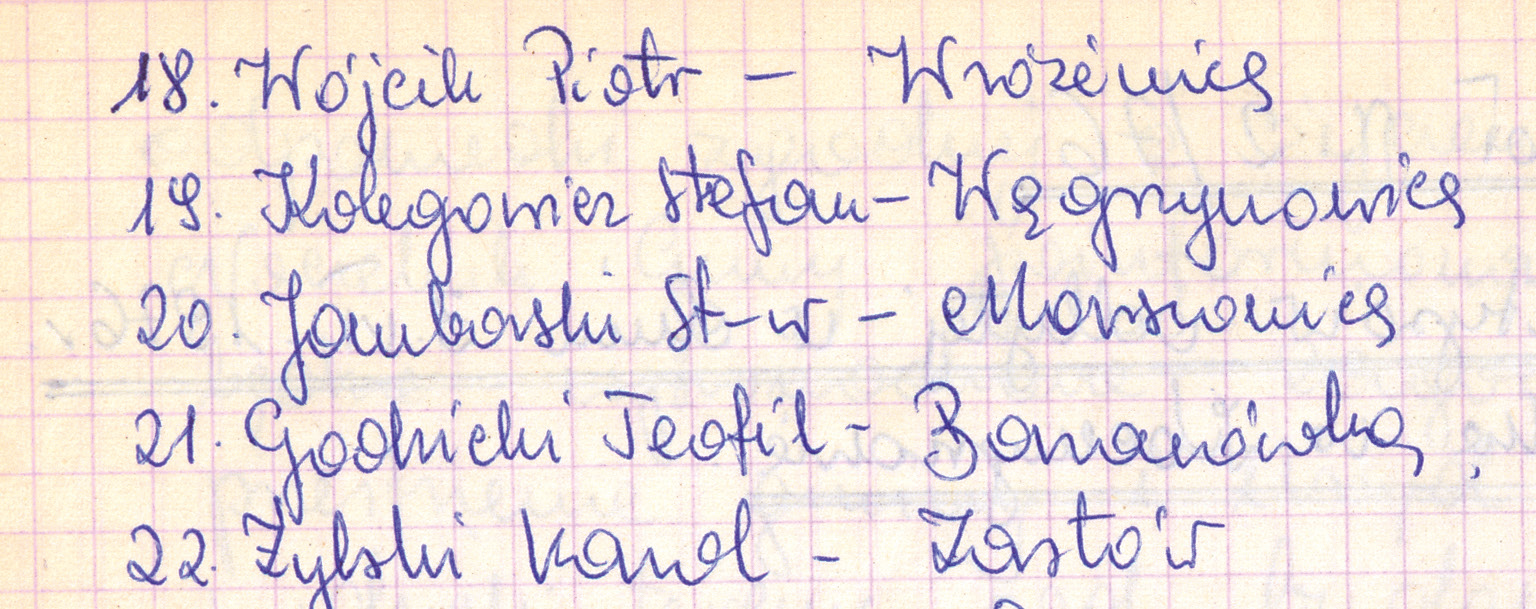 18. Wójcik Piotr – Wróżenice
19. Kolegowicz Stefan – Węgrzynowice
20. Jambarski St-w – Marszowice
21. Godzicki Teofil – Baranówka,
22. Żylski Karol – Zastów